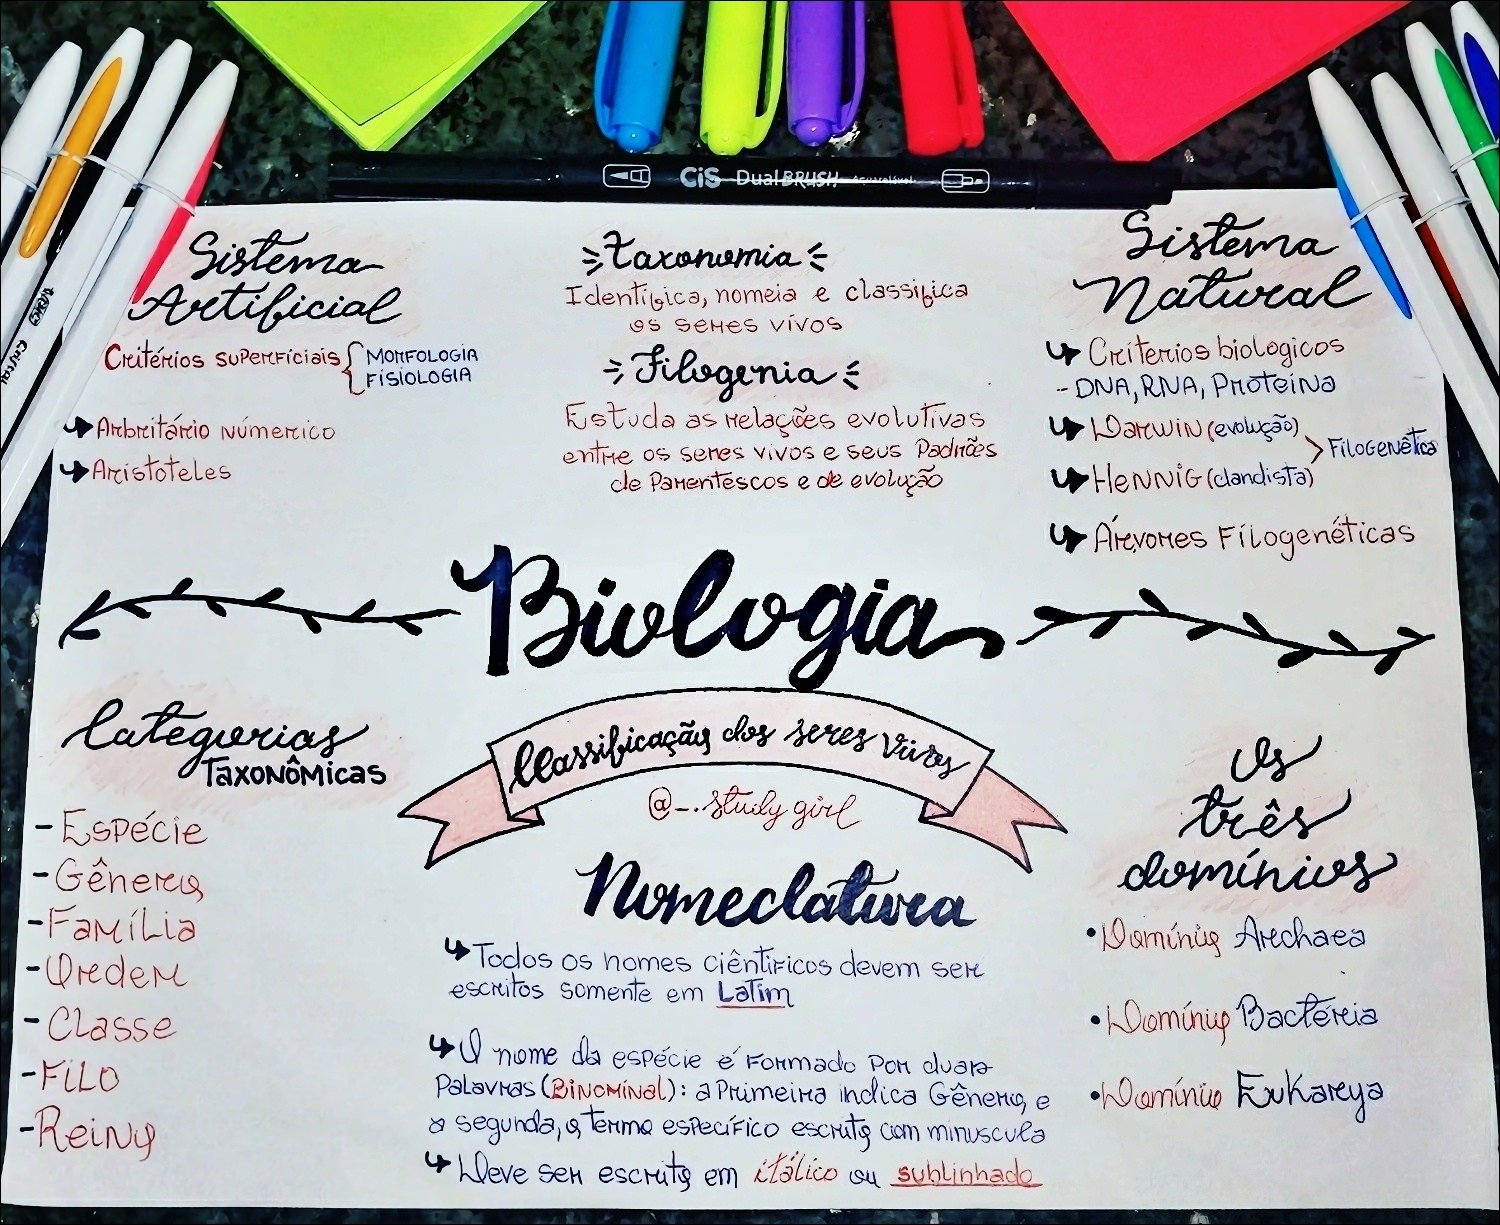 CiS Dual BRUSH Aquarelável
Sistema
Artificial
Critérios superficiais
Morfologia
Fisiologia
Arbritário númerico
Aristoteles
Taxonomia
Identifica, nomeia e classifica
os seres vivos
Filogenia
Estuda as relações evolutivas
entre os seres vivos e seus Padrões
de Parentescos e de evolução
Sistema
Natural
Críterios biologicos
- DNA, RNA, Proteína
Darwin (evolução)
Hennig (clandista)
Filogenética
Árvores Filogenéticas
Biologia
Classificação dos seres vivos
@_.study girl
Categorias
Taxonômicas
- Espécie
- Gênero
- Família
- Ordem
- Classe
- Filo
- Reino
Nomeclatura
Todos os nomes ciêntificos devem ser
escritos somente em Latim
O nome da espécie é formado por duas
Palavras (Binominal): a Primeira indica Gênero, e
o segunda, o termo específico escrito com minuscula
Deve ser escrito em itálico ou sublinhado
Os
três
domínios
• Domínio Archaea
• Domínio Bactéria
• Domínio Eukarya